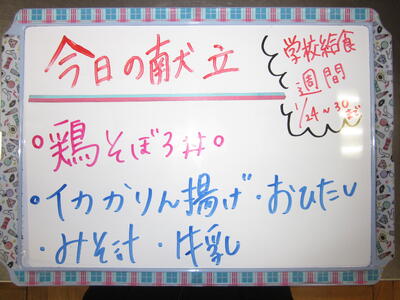 今日の献立
学校給食
週間
1/24~30まで
°鶏そぼろ丼°
°イカかりん揚げ・おひたし
・みそ汁・牛乳